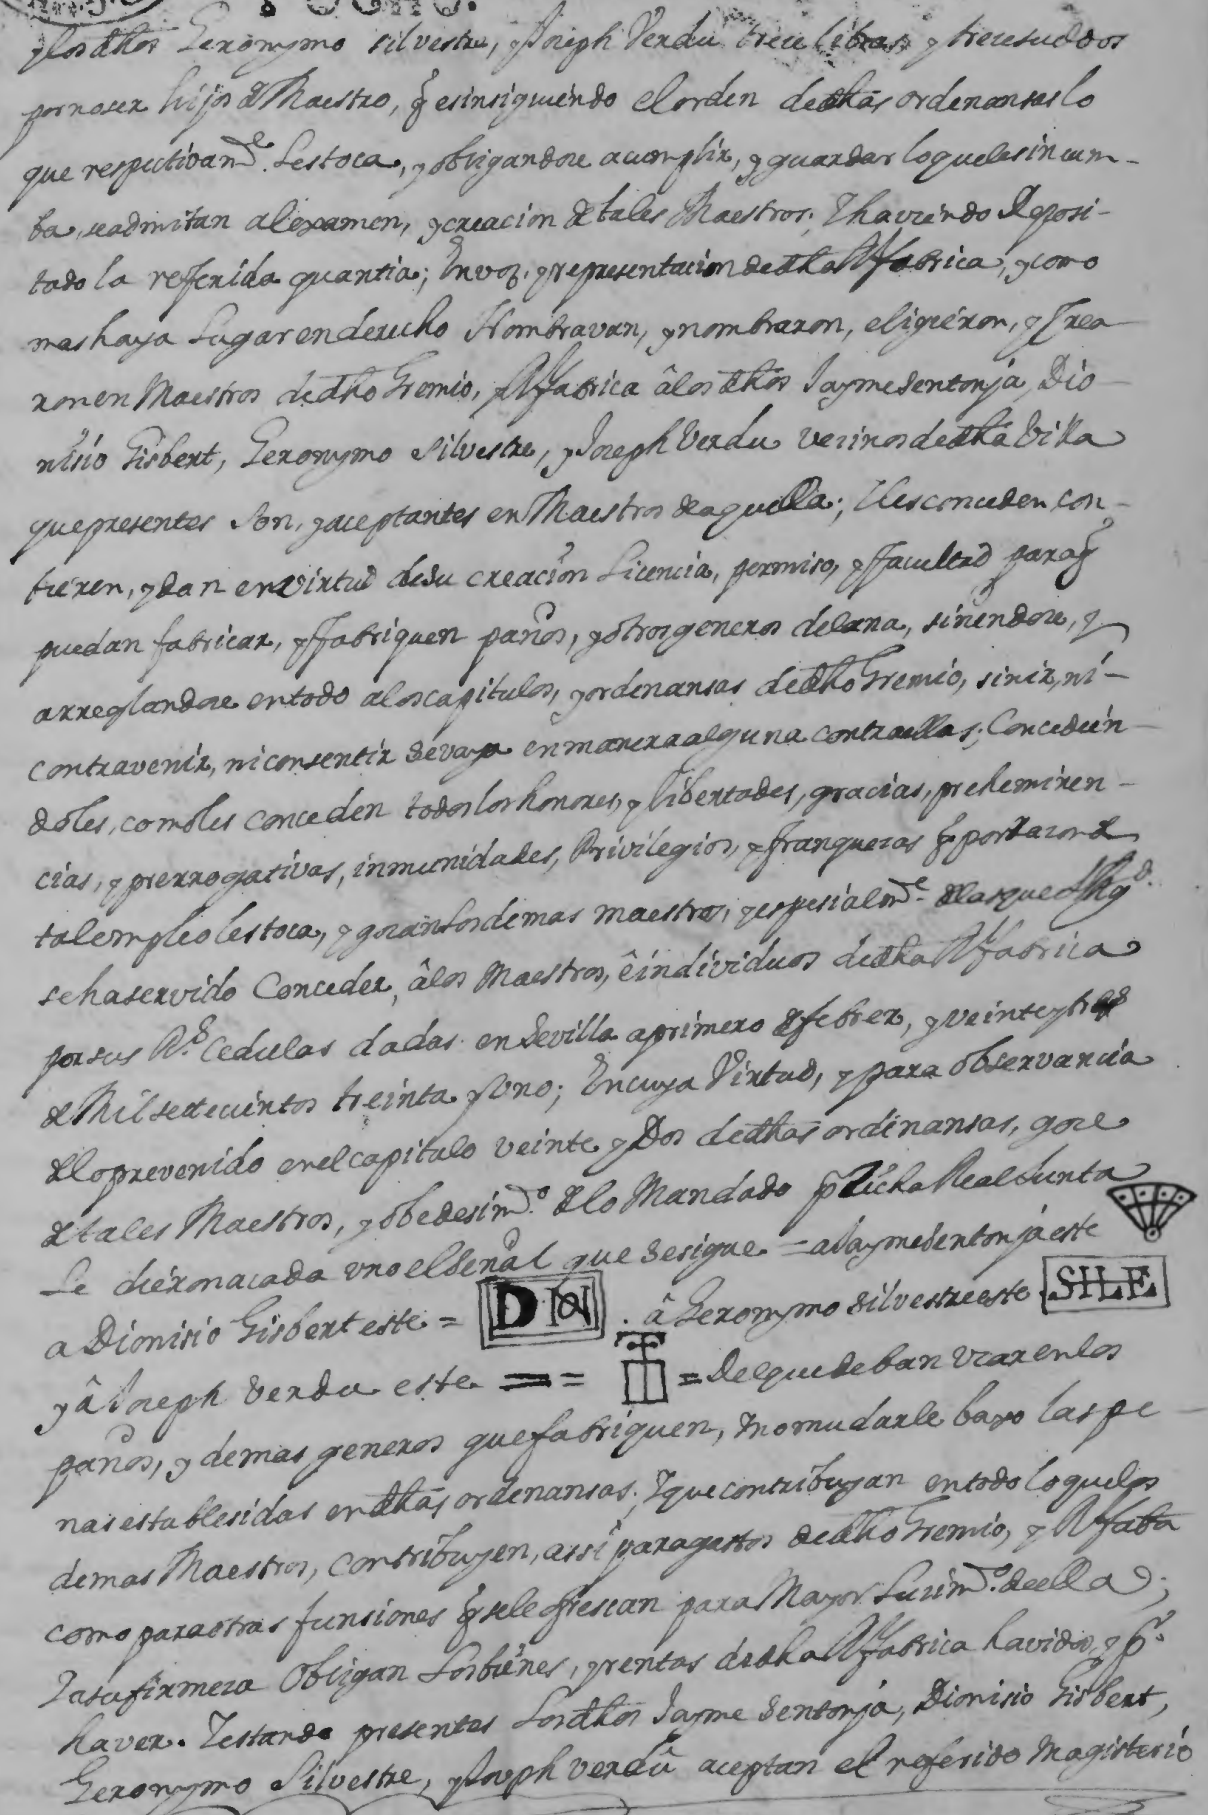 y los dhos Geronymo Silvestre, y Joseph Verdu trece libras y trece sueldos
por no ser hijos de Maestro, q̃ es insiguiendo el orden de dhas ordenansas lo
que respectivamte. les toca, y obligandose a cumplir, y guardar lo que les incum-
ba, se admitan al examen, y creacion de tales Maestros; Y haviendo deposi-
tado la refferida quantia; En voz, y representacion de dha Rl fabrica, y como
mas haya lugar en derecho Nombravan, y nombraron, eligieron, y Crea-
ron en Maestros de dho Gremio, y Rl fabrica â los dhos Jayme Sentonja, Dio-
nisio Gisbert, Geronymo Silvestre, y Joseph Verdu vezinos de dha Villa
que presentes son, y aceptantes en Maestros de aquella; Y les conceden, con-
fieren, y dan en virtud de su creacion Licencia, permiso, y ffacultad para q̃
puedan fabricar, y ffabriquen paños, y otros generos de lana, siñendose, y
arreglandose en todo a los capitulos, y ordenansas de dho Gremio, sin ir, ni-
contravenir, ni consentir se vaya en manera alguna contra ellas; Concedien-
doles, como les conceden todos los honores, y libertades, gracias, preheminen-
cias, y prerrogativas, inmunidades, Privilegios, y franquezas q̃ por razon de
tal empleo les toca, y gozan los demas maestros, y espesialmte. de las que S Mgd.
se ha servido Conceder, â los Maestros, ê individuos de dha Rl fabrica
por sus Rs. Cedulas dadas en Sevilla a primero de febrer, y veinte y tres
de Mil setecientos treinta y uno; En cuya Virtud, y para observancia
de lo prevenido en el capitulo veinte y Dos de dhas ordinansas, goze
de tales Maestros, y obedesimto. de lo Mandado p dicha Real Junta
Se dieron a cada uno el señal que se sigue = a Jayme Sentonja este
a Dionisio Gisbert este = D N . â Geronymo Silvestre este SILE
y â Joseph Verdu este = = = Del que deban uzar en los
paños, y demas generos que fabriquen, Y no mudarle baxo las pe-
nas establesidas en dhas ordenansas; Y que contribuyan en todo lo que los
demas Maestros, contribuyen, assi para gastos de dho Gremio, y Rl faba
como para otras funsiones q̃ se le ofrescan para Mayor Luzimto. de ella;
Y a su firmeza Obligan los bienes, y rentas de dha Rl fabrica havidos, y pr.
haver. Y estando presentes los dhos Jayme Sentonja, Dionisio Gisbert,
Geronymo Silvestre, y Joseph Verdû aceptan el referido Magisterio